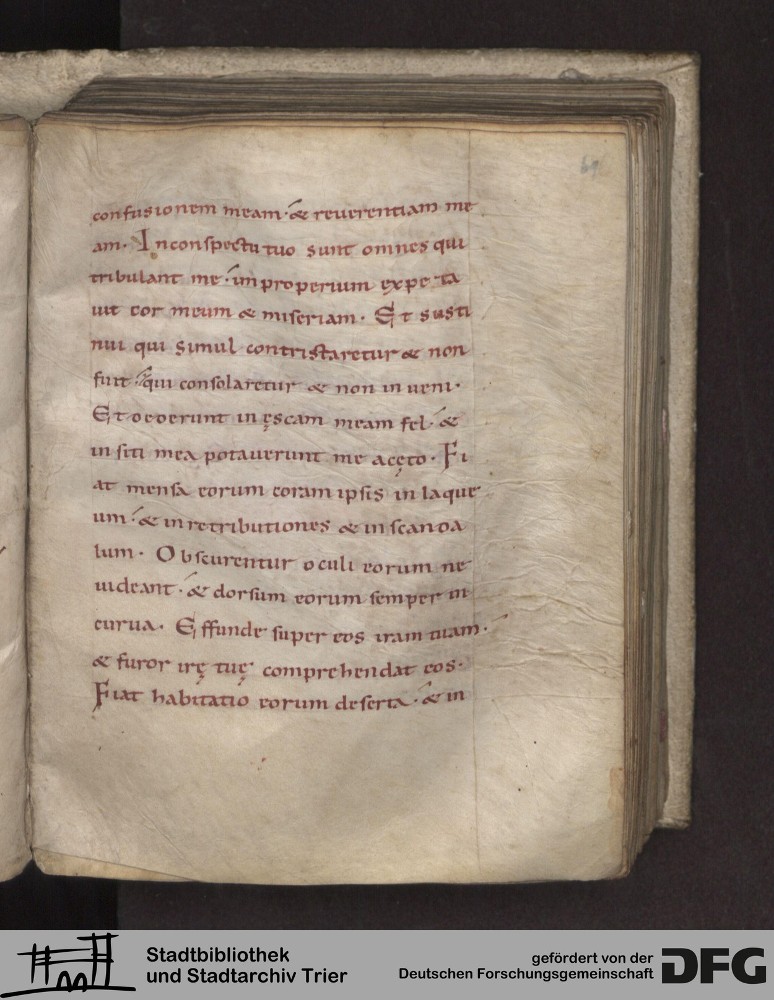 69
confusionem meam· & reuerentiam me
am· Inconspectu tuo sunt omnes qui
tribulant me· improperium expecta
uit cor meum & miseriam· Et susti
nui qui simul contristaretur & non
fuit· & qui consolaretur & non inueni·
Et dederunt in ęscam meam fel· &
in siti mea potauerunt me acęto· Fi
at mensa eorum coram ipsis in laque
um· & in retributiones & in scanda
lum· Obscurentur oculi eorum ne
uideant· & dorsum eorum semper in
curua· Effunde super eos iram tuam·
& furor irę tuę comprehendat eos·
Fiat habitatio eorum deserta· & in
Stadtbibliothek
und Stadtarchiv Trier
gefördert von der
Deutschen Forschungsgemeinschaft
DFG